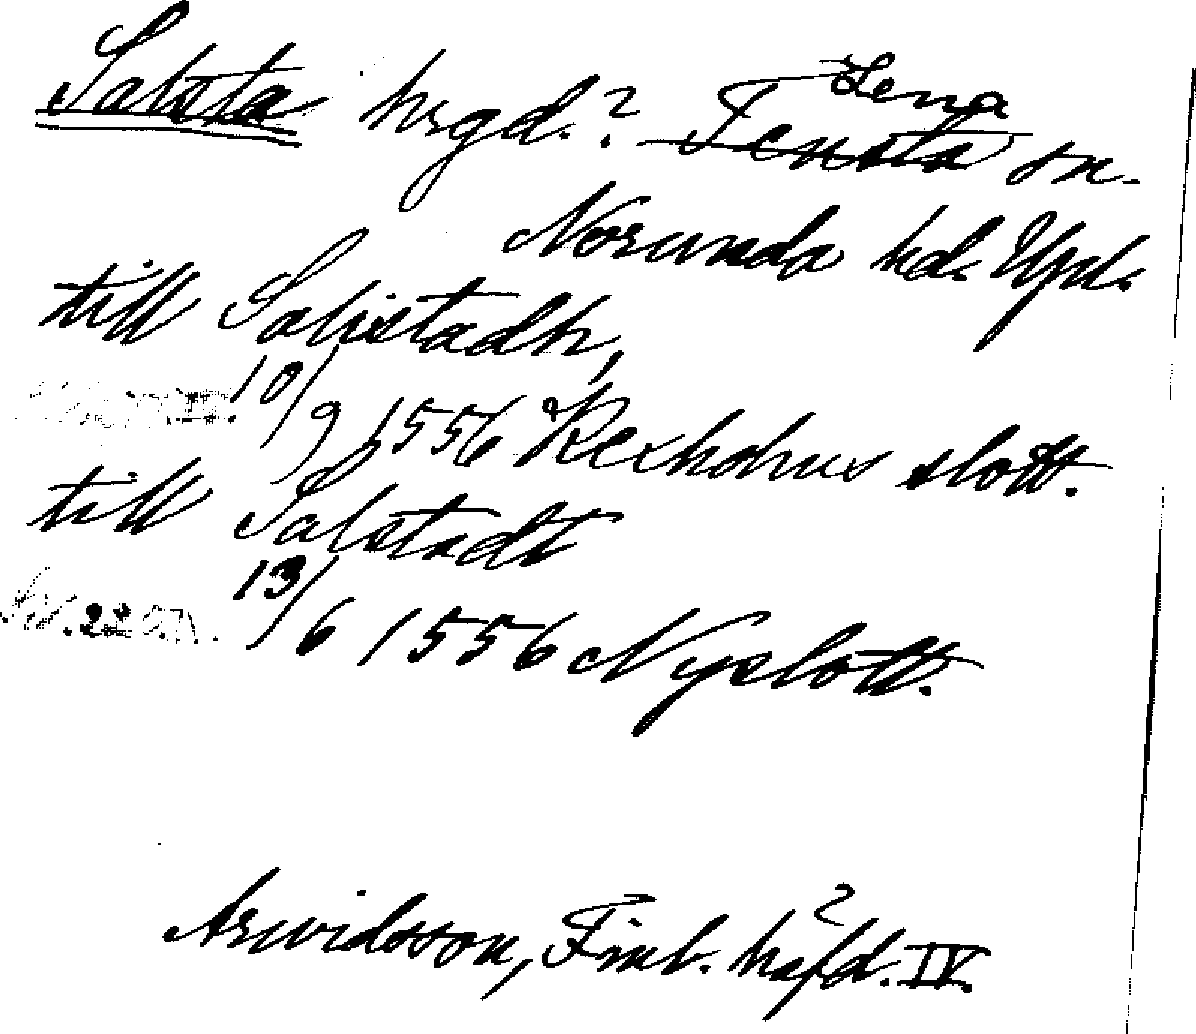 Salsta hrgd.? Tensta Lena sn.
Norunda hd. Upl.
till Salistadh,
10/9 1556 Kexholms slott.
till Salstadt
13/6 1556 Nyslott.
Arwidsson, Finl. häfd. IV.